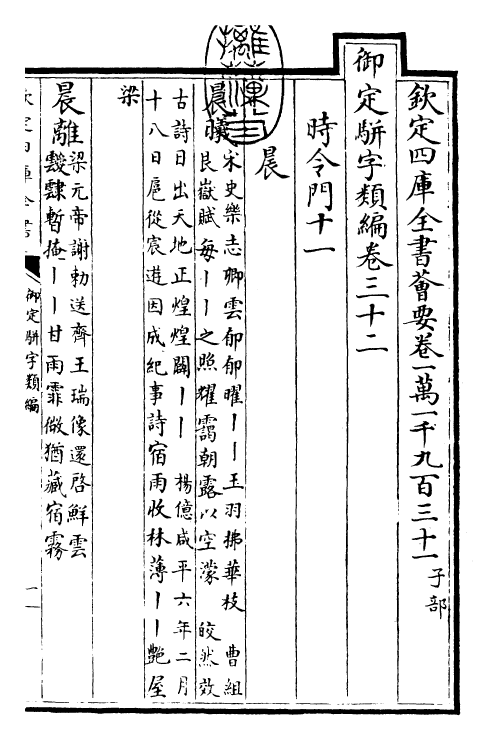 欽定四庫全書薈要卷一萬一千九百三十一子部
御定駢字類編卷三十二
時令門十一
晨
晨曦宋史樂志卿雲郁郁曜丨丨玉羽拂華枝 曹組
艮嶽賦每丨丨之照耀靄朝露以空濛 皎然效
古詩日出天地正煌煌闢丨丨 楊億咸平六年二月
十八日扈從宸遊因成紀事詩宿雨收林薄丨丨艷屋
梁
晨離梁元帝謝勅送齊王瑞像還啓鮮雲
靉靆暫掩丨丨甘雨霏微猶藏宿霧
欽定四庫全書
御定駢字類編
一